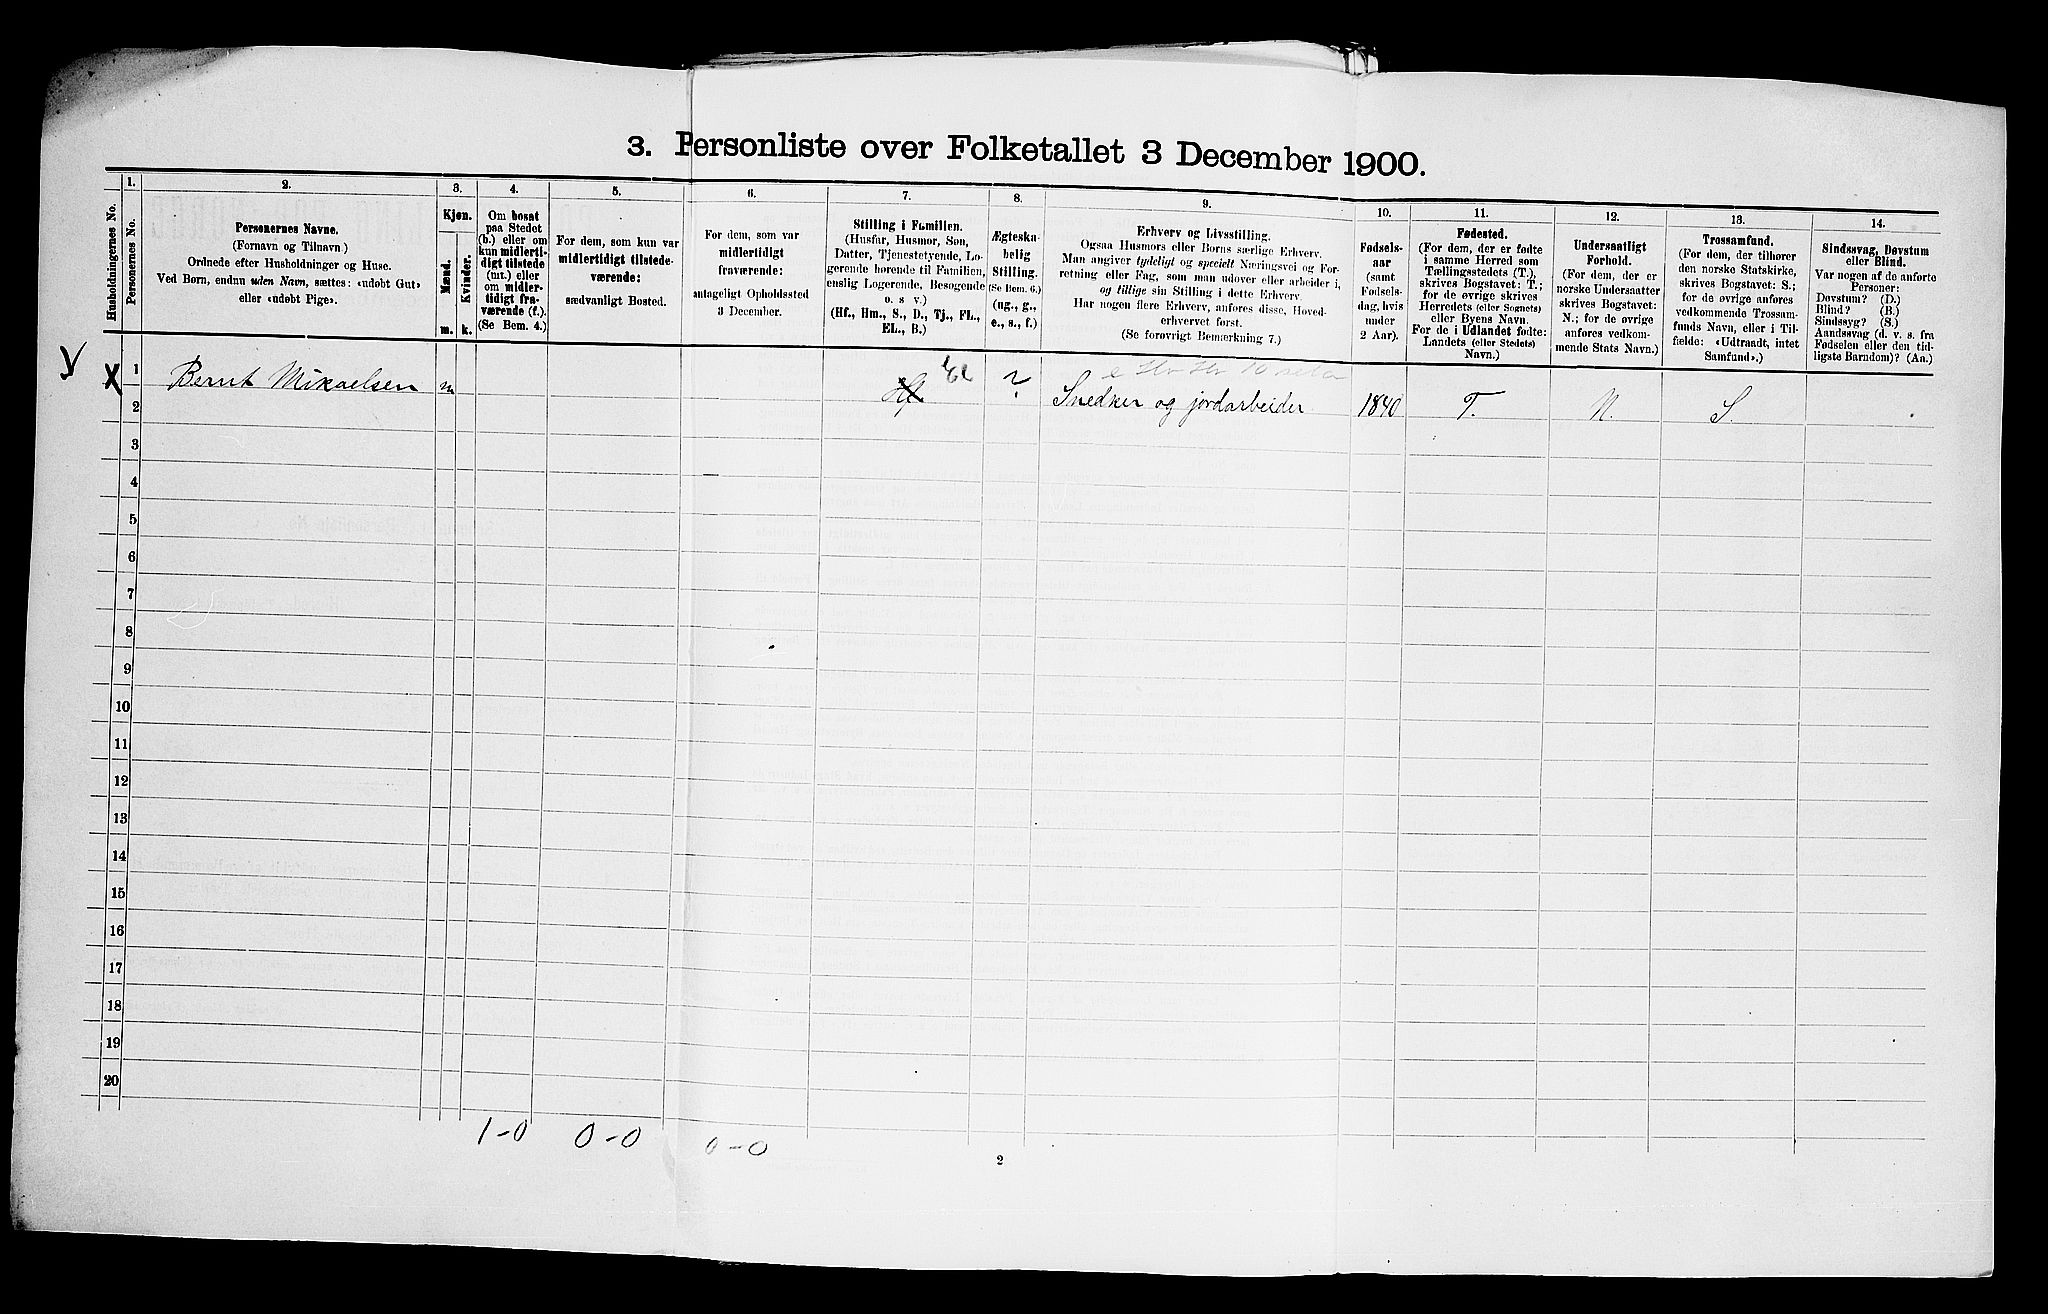 3. Personliste over Folketallet 3 December 1900.
Husholdningernes No.
1.
Personernes No.
2.
Personernes Navne.
(Fornavn og Tilnavn)
Ordnede efter Husholdninger og Huse.
Ved Børn, endnu uden Navn, sættes: «udøbt Gut»
eller «udøbt Pige».
3.
Kjøn.
Mænd.
Kvinder.
m. k.
4.
Om bosat
paa Stedet
(b.) eller om
kun midlerti-
digt tilstede
(mt.) eller
om midler-
tidigt fra-
værende (f.).
(Se Bem. 4.)
5.
For dem, som kun var
midlertidigt tilstede-
værende:
sædvanligt Bosted.
6.
For dem, som var
midlertidigt
fraværende:
antageligt Opholdssted
3 December.
7.
Stilling i Familien.
(Husfar, Husmor, Søn,
Datter, Tjenestetyende, Lo-
gerende hørende til Familien,
enslig Logerende, Besøgende
o. s v.)
(Hf., Hm., S., D., Tj., FL.,
EL., B.)
8.
Ægteska-
belig
Stilling.
(Se Bem. 6.)
(ug., g.,
e., s., f.)
9.
Erhverv og Livsstilling.
Ogsaa Husmors eller Børns særlige Erhverv.
Man angiver tydeligt og specielt Næringsvei og For-
retning eller Fag, som man udøver eller arbeider i,
og tillige sin Stilling i dette Erhverv.
Har nogen flere Erhverv, anføres disse, Hoved-
erhvervet først.
(Se forøvrigt Bemærkning 7.)
10.
Fødsels-
aar
(samt
Fødsels-
dag, hvis
under
2 Aar).
11.
Fødested.
(For dem, der er fødte
i samme Herred som
Tællingsstedets (T.),
skrives Bogstavet: T.;
for de øvrige skrives
Herredets (eller Sognets)
eller Byens Navn.
For de i Udlandet fødte:
Landets (eller Stedets)
Navn.)
12.
Undersaatligt
Forhold.
(For dem, der er
norske Undersaatter
skrives Bogstavet:
N.; for de øvrige
anføres vedkom-
mende Stats Navn.)
13.
Trossamfund.
(For dem, der tilhører
den norske Statskirke,
skrives Bogstavet: S.;
for de øvrige anføres
vedkommende Trossam-
funds Navn, eller i Til-
fælde: «Udtraadt, intet
Samfund».)
14.
Sindssvag, Døvstum
eller Blind.
Var nogen af de anførte
Personer:
Døvstum? (D.)
Blind? (B.)
Sindssyg? (S.)
Aandssvag (d. v. s. fra
Fødselen eller den tid-
ligste Barndom)? (Aa.)
X 1 Bernt Mikaelsen m Hf EL ? Snedker og jordarbeider 1840 T. N. S.
2
3
4
5
6
7
8
9
10
11
12
13
14
15
16
17
18
19
20
1-0 0-0 0-0
2